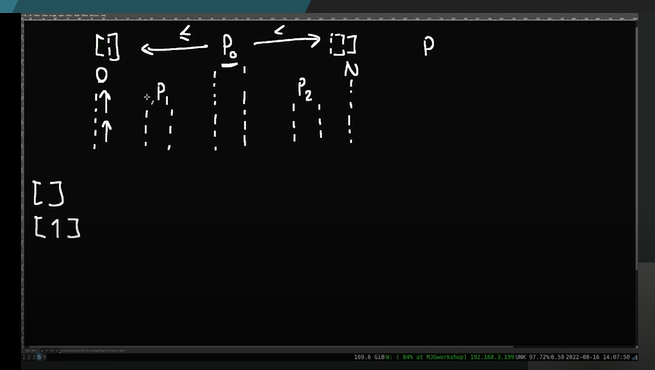 [i] ≤ P₀ < [] P
0 N
P₁ P₂
[]
[1]
169.6 GiB W: ( 84% at MJGworkshop) 192.168.3.199 UNK 97.72% 0.58 2022-08-16 14:07:50